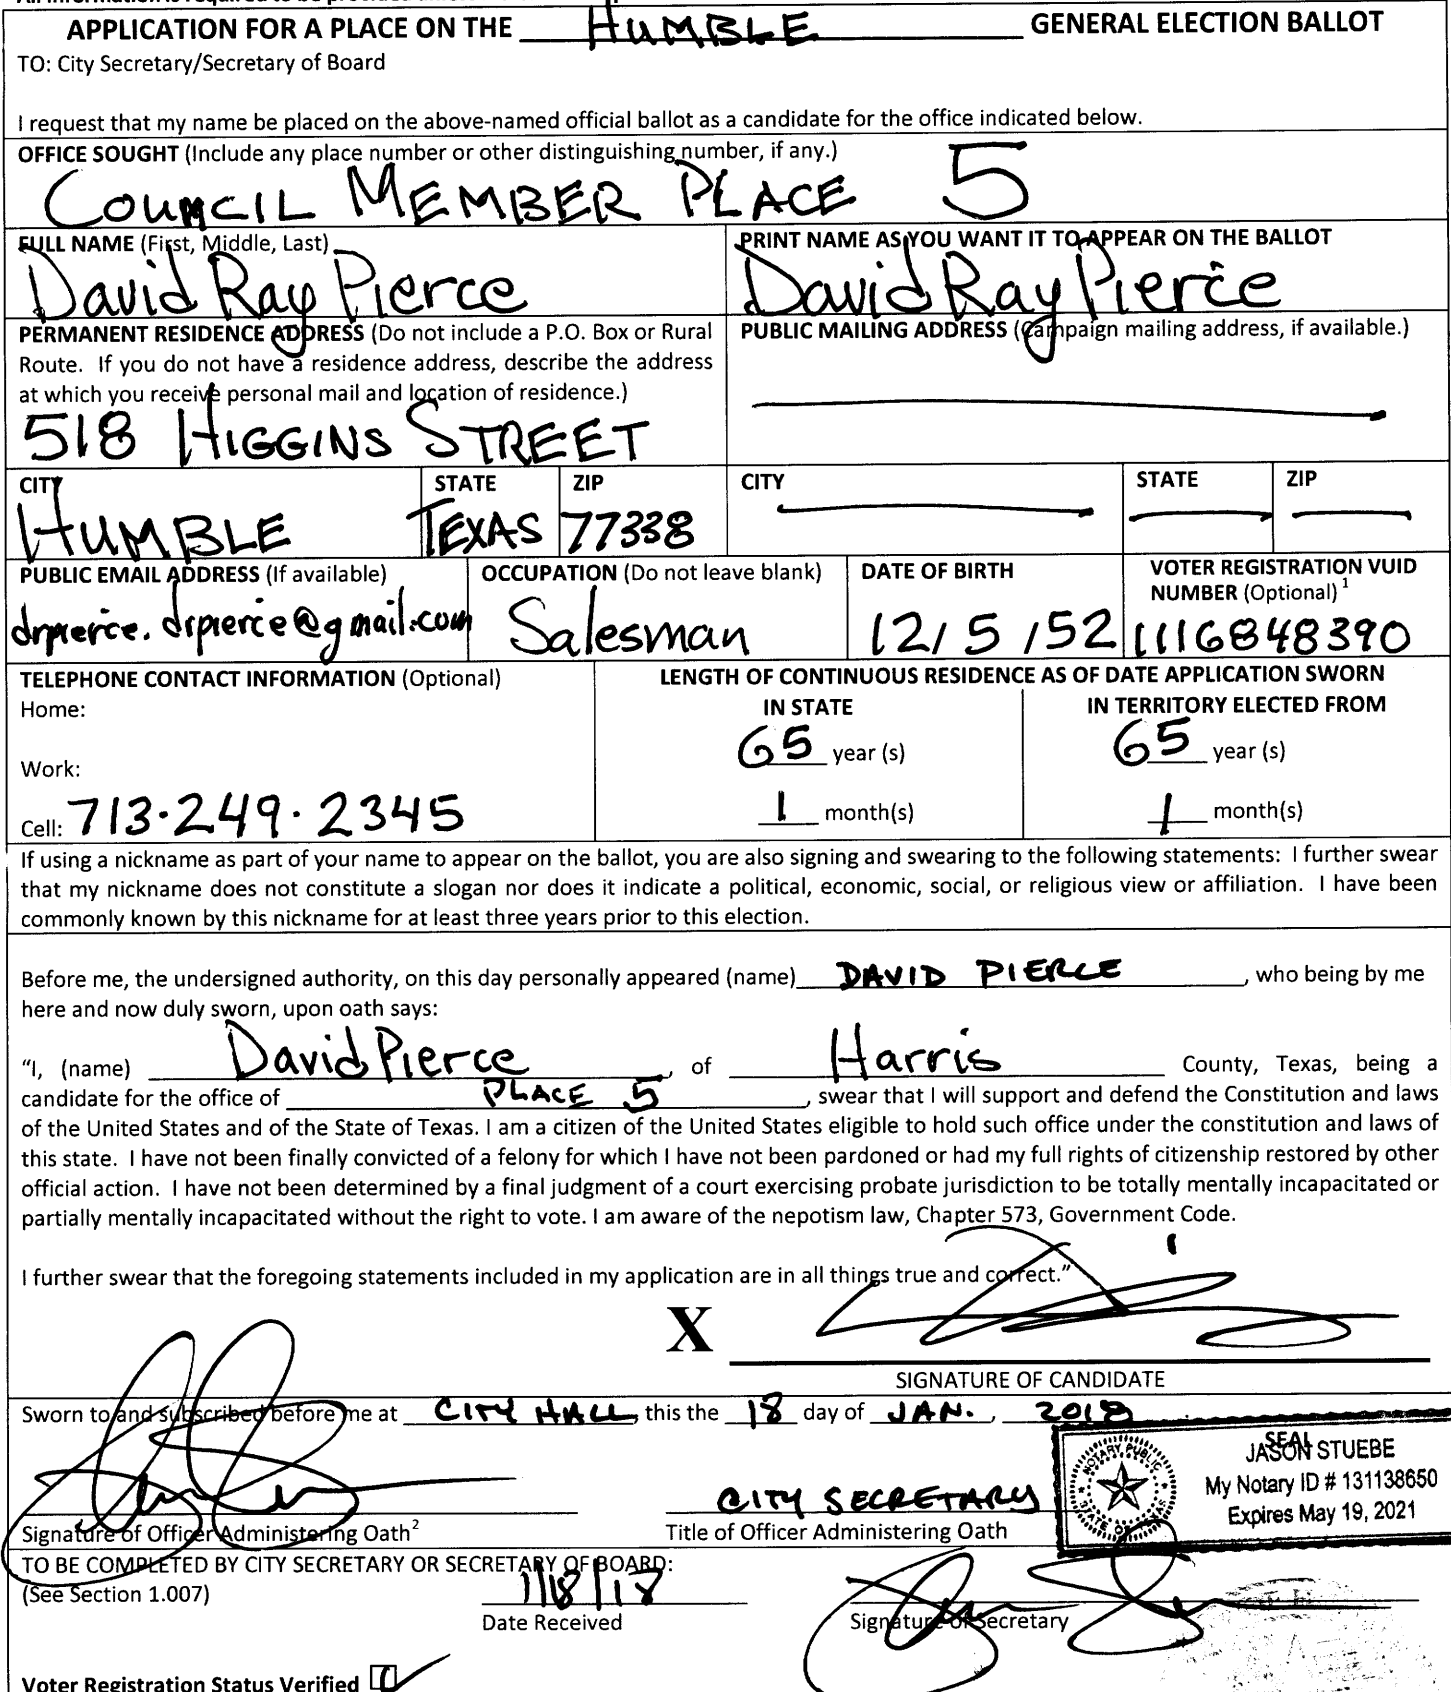 APPLICATION FOR A PLACE ON THE HUMBLE GENERAL ELECTION BALLOT
TO: City Secretary/Secretary of Board
I request that my name be placed on the above-named official ballot as a candidate for the office indicated below.
OFFICE SOUGHT (Include any place number or other distinguishing number, if any.)
COUNCIL MEMBER PLACE 5
FULL NAME (First, Middle, Last)
David Ray Pierce
PRINT NAME AS YOU WANT IT TO APPEAR ON THE BALLOT
David Ray Pierce
PERMANENT RESIDENCE ADDRESS (Do not include a P.O. Box or Rural
Route. If you do not have a residence address, describe the address
at which you receive personal mail and location of residence.)
518 HIGGINS STREET
PUBLIC MAILING ADDRESS (Campaign mailing address, if available.)
CITY
HUMBLE
STATE
TEXAS
ZIP
77338
CITY
STATE
ZIP
PUBLIC EMAIL ADDRESS (If available)
drpierce.drpierce@gmail.com
OCCUPATION (Do not leave blank)
Salesman
DATE OF BIRTH
12/5/52
VOTER REGISTRATION VUID
NUMBER (Optional) 1
1116848390
TELEPHONE CONTACT INFORMATION (Optional)
Home:
Work:
Cell: 713·249·2345
LENGTH OF CONTINUOUS RESIDENCE AS OF DATE APPLICATION SWORN
IN STATE
65 year (s)
1 month(s)
IN TERRITORY ELECTED FROM
65 year (s)
1 month(s)
If using a nickname as part of your name to appear on the ballot, you are also signing and swearing to the following statements: I further swear
that my nickname does not constitute a slogan nor does it indicate a political, economic, social, or religious view or affiliation. I have been
commonly known by this nickname for at least three years prior to this election.
Before me, the undersigned authority, on this day personally appeared (name) DAVID PIERCE, who being by me
here and now duly sworn, upon oath says:
"I, (name) David Pierce, of Harris County, Texas, being a
candidate for the office of PLACE 5, swear that I will support and defend the Constitution and laws
of the United States and of the State of Texas. I am a citizen of the United States eligible to hold such office under the constitution and laws of
this state. I have not been finally convicted of a felony for which I have not been pardoned or had my full rights of citizenship restored by other
official action. I have not been determined by a final judgment of a court exercising probate jurisdiction to be totally mentally incapacitated or
partially mentally incapacitated without the right to vote. I am aware of the nepotism law, Chapter 573, Government Code.
I further swear that the foregoing statements included in my application are in all things true and correct."
X
SIGNATURE OF CANDIDATE
Sworn to and subscribed before me at CITY HALL, this the 18 day of JAN., 2018
SEAL
JASON STUEBE
My Notary ID # 131138650
Expires May 19, 2021
NOTARY PUBLIC
STATE OF TEXAS
CITY SECRETARY
Signature of Officer Administering Oath2
Title of Officer Administering Oath
TO BE COMPLETED BY CITY SECRETARY OR SECRETARY OF BOARD:
(See Section 1.007)
1/18/18
Date Received
Signature of Secretary
Voter Registration Status Verified